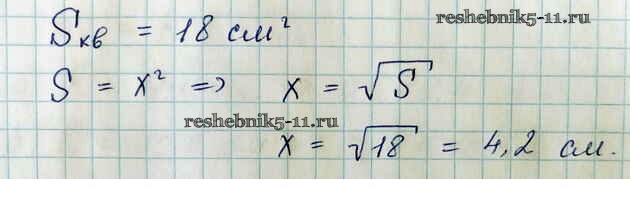 Sкв = 18 см² reshebnik5-11.ru
S = x² => x = √S
reshebnik5-11.ru
x = √18 = 4,2 см.